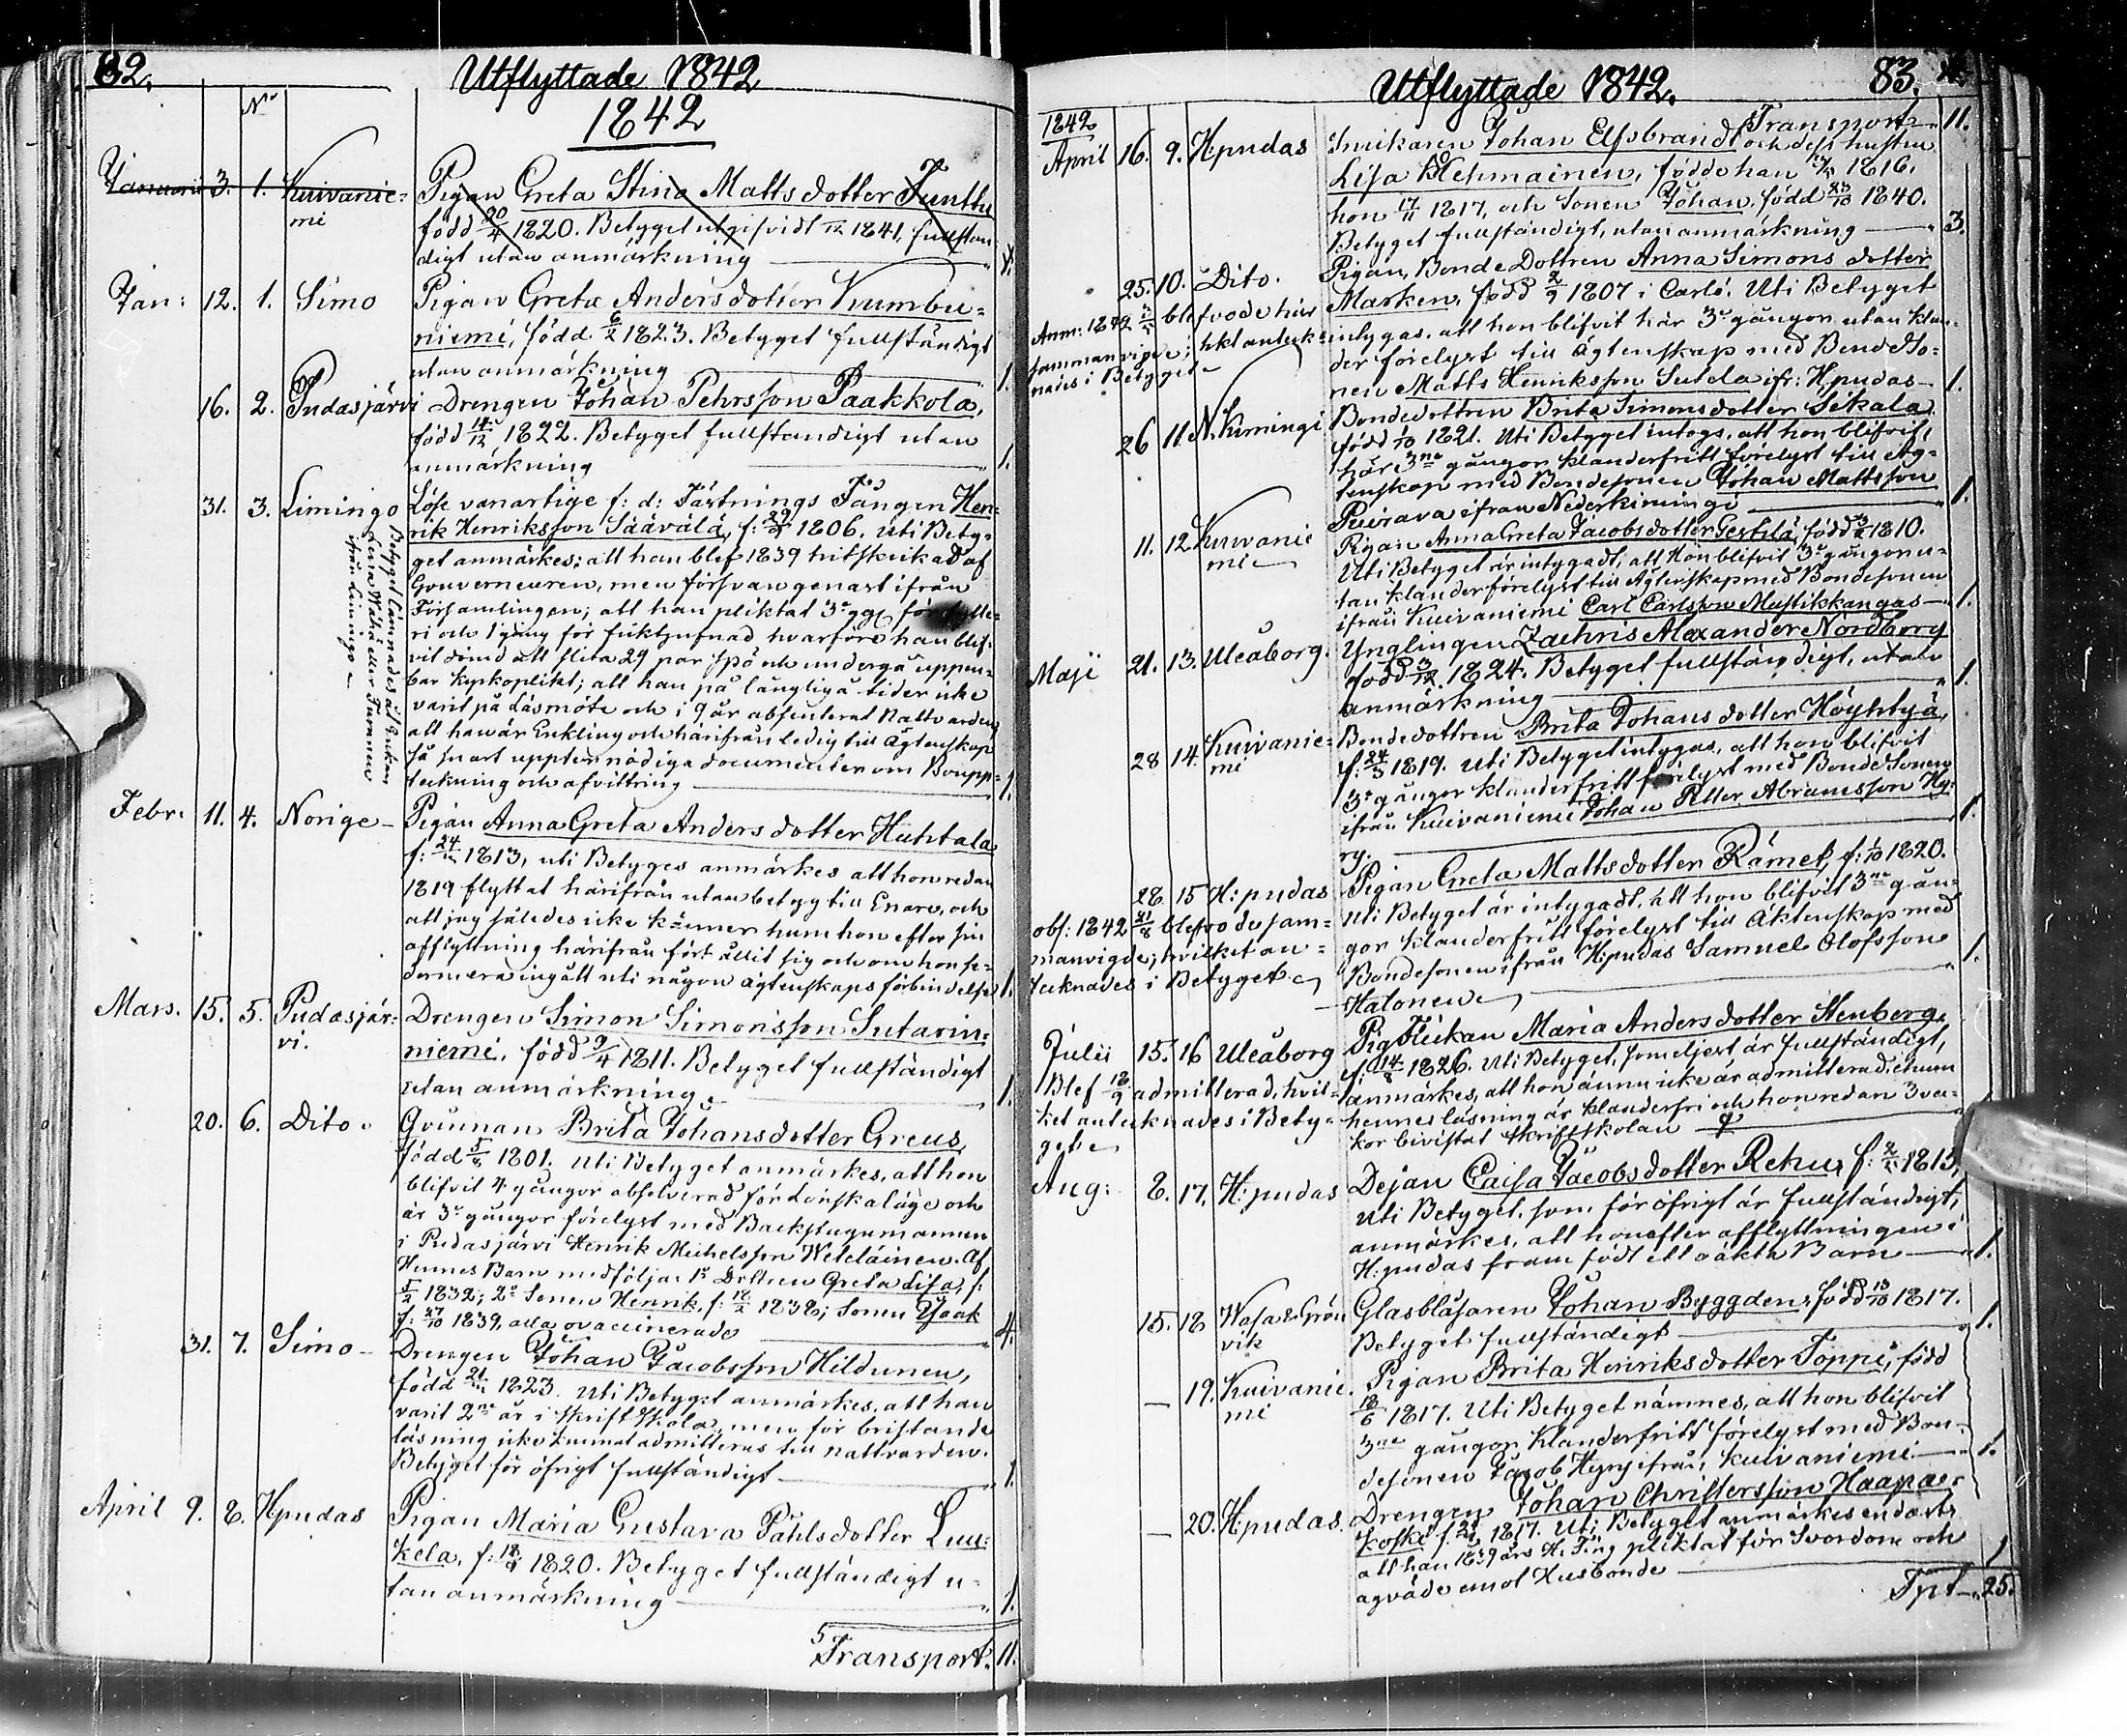 82.
Utflyttade 1842
1842
No
Januarii 3. 1. Kuivanie=
mi
Pigan Greta Stina Mattsdotter Junttu
född 20/4 1820. Betyget utgifvidt 1841, fullstän
digt utan anmärkning
Jan: 12. 1. Simo
Pigan Greta Andersdotter Krumbu=
niemi, född 6/2 1823. Betyget fullständigt
utan anmärkning 1.
16. 2. Pudasjärvi Drengen Johan Pehrsson Paakkola,
född 14/12 1822. Betyget fullständigt utan
anmärkning 1.
31. 3. Limingo Löse vanartige f: d: Fästnings Fången Hen=
rik Henriksson Säävälä, f: 1806. Uti Bety=
get anmärkes; att han blef 1839 hitskickad af
Gouverneuren, men försvan genast ifrån
Församlingen; att han pliktat 3e ggr för
ri och 1 gång för fiktjufnad hvarföre han blif=
vit dömd att slita 29 par spö och undergå uppen=
bar kyrkoplikt; att han på långliga tider icke
varit på Läsmöte och i 9 år absenterat Nattvarden
att han är Enkling och härifrån ledig till Ägtenskap
så snart nödiga documenter om Boupp=
teckning och afvittring 1.
Betyget lämnades åt Enkan
Lena eller Turunen
ifrån Limingo
Febr. 11. 4. Norige
Pigan Anna Greta Andersdotter Huhtala
f: 24 1813, uti Betyges anmärkes att hon redan
1819 flyttat härifrån utan betyg till Enare, och
att jag således icke känner huru hon efter sin
afflyttning härifrån fört sig och om hon se=
dermera ingått uti någon ägtenskaps förbindelse 1.
Mars. 15. 5. Pudasjär=
vi.
Drengen Simon Simonsson Sutarin=
niemi, född 9/4 1811. Betyget fullständigt
utan anmärkning. 1.
20. 6. Dito
Qvinnan Brita Johansdotter Greus,
född 1801. Uti Betyget anmärkes, att hon
blifvit 4 gångor absolverad för Lönskaläge och
är 3e gångor förelyst med Backstugumannen
i Pudasjärvi Henrik Michelsson Weteläinen. Af
Hennes Barn medfölja: 1o Dottren Greta Lisa, f:
5/2 1832; 2o Sonen Henrik, f: 18/2 1838; Sonen Isaak
f: 27/10 1839, alla ovaccinerade 4.
31. 7. Simo
Drengen Johan Jacobsson Hildunen,
född 21 1823. Uti Betyget anmärkes, att han
varit 2ne år i Skriftskola, men för bristande
läsning icke kunnat admitteras till nattvarden.
Betyget för öfrigt fullständigt 1.
April 9. 8. H:pudas
Pigan Maria Gustava Påhlsdotter Luu=
kela, f: 18 1820. Betyget fullständigt u=
tan anmärkning 1.
Transport. 11.
Utflyttade 1842. 83.
Transport 11.
1842
April 16. 9. H:pudas
Snickaren Johan Elfsbrandt och dess hustru
Lisa Kehmainen, födde han 1816.
hon 17/11 1817, och Sonen Johan, född 23/10 1840.
Betyget fullständigt, utan anmärkning 3.
25. 10. Dito.
Pigan, BondeDottren Anna Simonsdotter
Marken, född 2/9 1807 i Carlö. Uti Betyget
intygas, att hon blifvit här 3e gångor utan klan=
der förelyst till Ägtenskap med BondeSo=
nen Matts Henriksson Sutela ifr: H:pudas 1.
Anm: 1842 blefvo de här
sammanvigde; hket anteck=
nades i Betyget
26 11. N. Kimingi
Bondedottren Brita Simonsdotter Sikala
född 1/10 1821. Uti Betyget intogs, att hon blifvit
här 3ne gångor klanderfritt förelyst till Äg=
tenskap med Bondesonen Johan Mattsson
Puirava ifran Nederkimingi 1.
11. 12. Kuivanie
mi
Pigan Anna Greta Jacobsdotter Pertilä, född 1810.
Uti Betyget är intygadt, att Hon blifvit 3e gångor u=
tan klander förelyst till Ägtenskap med Bondesonen
ifrån Kuivaniemi Carl Carlsson Mustikkangas 1.
Maji 21. 13. Uleåborg.
Ynglingen Zachris Alexander Nordberg
född 3/12 1824. Betyget fullständigt, utan
anmärkning 1.
28 14. Kuivanie=
mi
Bondedottren Brita Johansdotter Höyhtyä,
f: 24/3 1819. Uti Betyget intygas, att hon blifvit
3e gångor klanderfritt förelyst med BondeSonen
ifrån Kuivaniemi Johan Petter Abramsson Hy=
ry. 1.
28. 15 H:pudas
Pigan Greta Mattsdotter Rämet, f: 1/10 1820.
Uti Betyget är intygadt, att hon blifvit 3ne gån=
gor klanderfritt förelyst till Äktenskap med
Bondesonen ifrån H:pudas Samuel Olofsson
Halonen 1.
obs: 1842 blefvo de sam=
manvigde; hvilket an=
tecknades i Betyget
Julii 15. 16 Uleåborg
Pigflickan Maria Andersdotter Stenberg,
f: 14/8 1826. Uti Betyget, som eljest är fullständigt,
anmärkes, att hon ännu icke är admitterad, ehuru
hennes läsning är klanderfri och hon redan 3 vec=
kor bivistat skriftskolan
Blef 18/9 admitterad, hvil=
ket antecknades i Bety=
get
Aug: 8. 17. H:pudas
Dejan Caisa Jacobsdotter Rehu, f: 1813,
Uti Betyget, som för öfrigt är fullständigt,
anmärkes, att hon efter afflyttningen i
H:pudas framfödt ett oäkta Barn 1.
15. 18 Wasa & Grön
vik
Glasblåsaren Johan Byggden, född 13/10 1817.
Betyget fullständigt 1.
— 19. Kuivanie
mi
Pigan Brita Henriksdotter Toppi, född
18/6 1817. Uti Betyget nämnes, att hon blifvit
3ne gångor klanderfritt förelyst med Bon=
desonen Jacob Hyry ifrån Kuivaniemi 1.
— 20. H:pudas.
Drengen Johan Christersson Haapa
koski f: 1817. Uti Betyget anmärkes endast,
att han 1839 års H. Ting pliktat för Svordom och
emot Husbonde 1
Tpt 25.